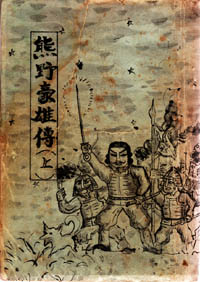 熊野豪雄傳(上)